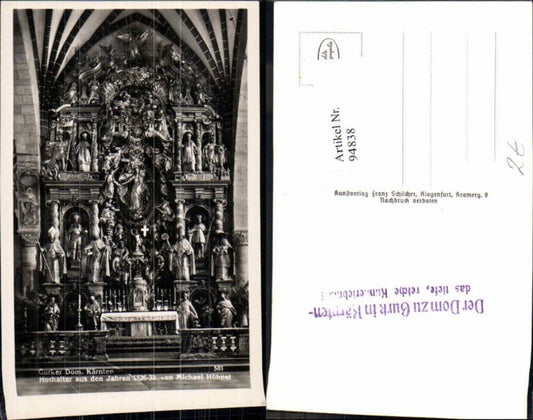 Gurker Dom, Kärnten
Hochaltar aus den Jahren 1626-38 von Michael Hönel
581
Artikel Nr.
94838
2€
Kunstverlag Franz Schilcher, Klagenfurt, Kramerg. 9
Nachdruck verboten
Der Dom zu Gurk in Kärnten-
das tiefe, reiche